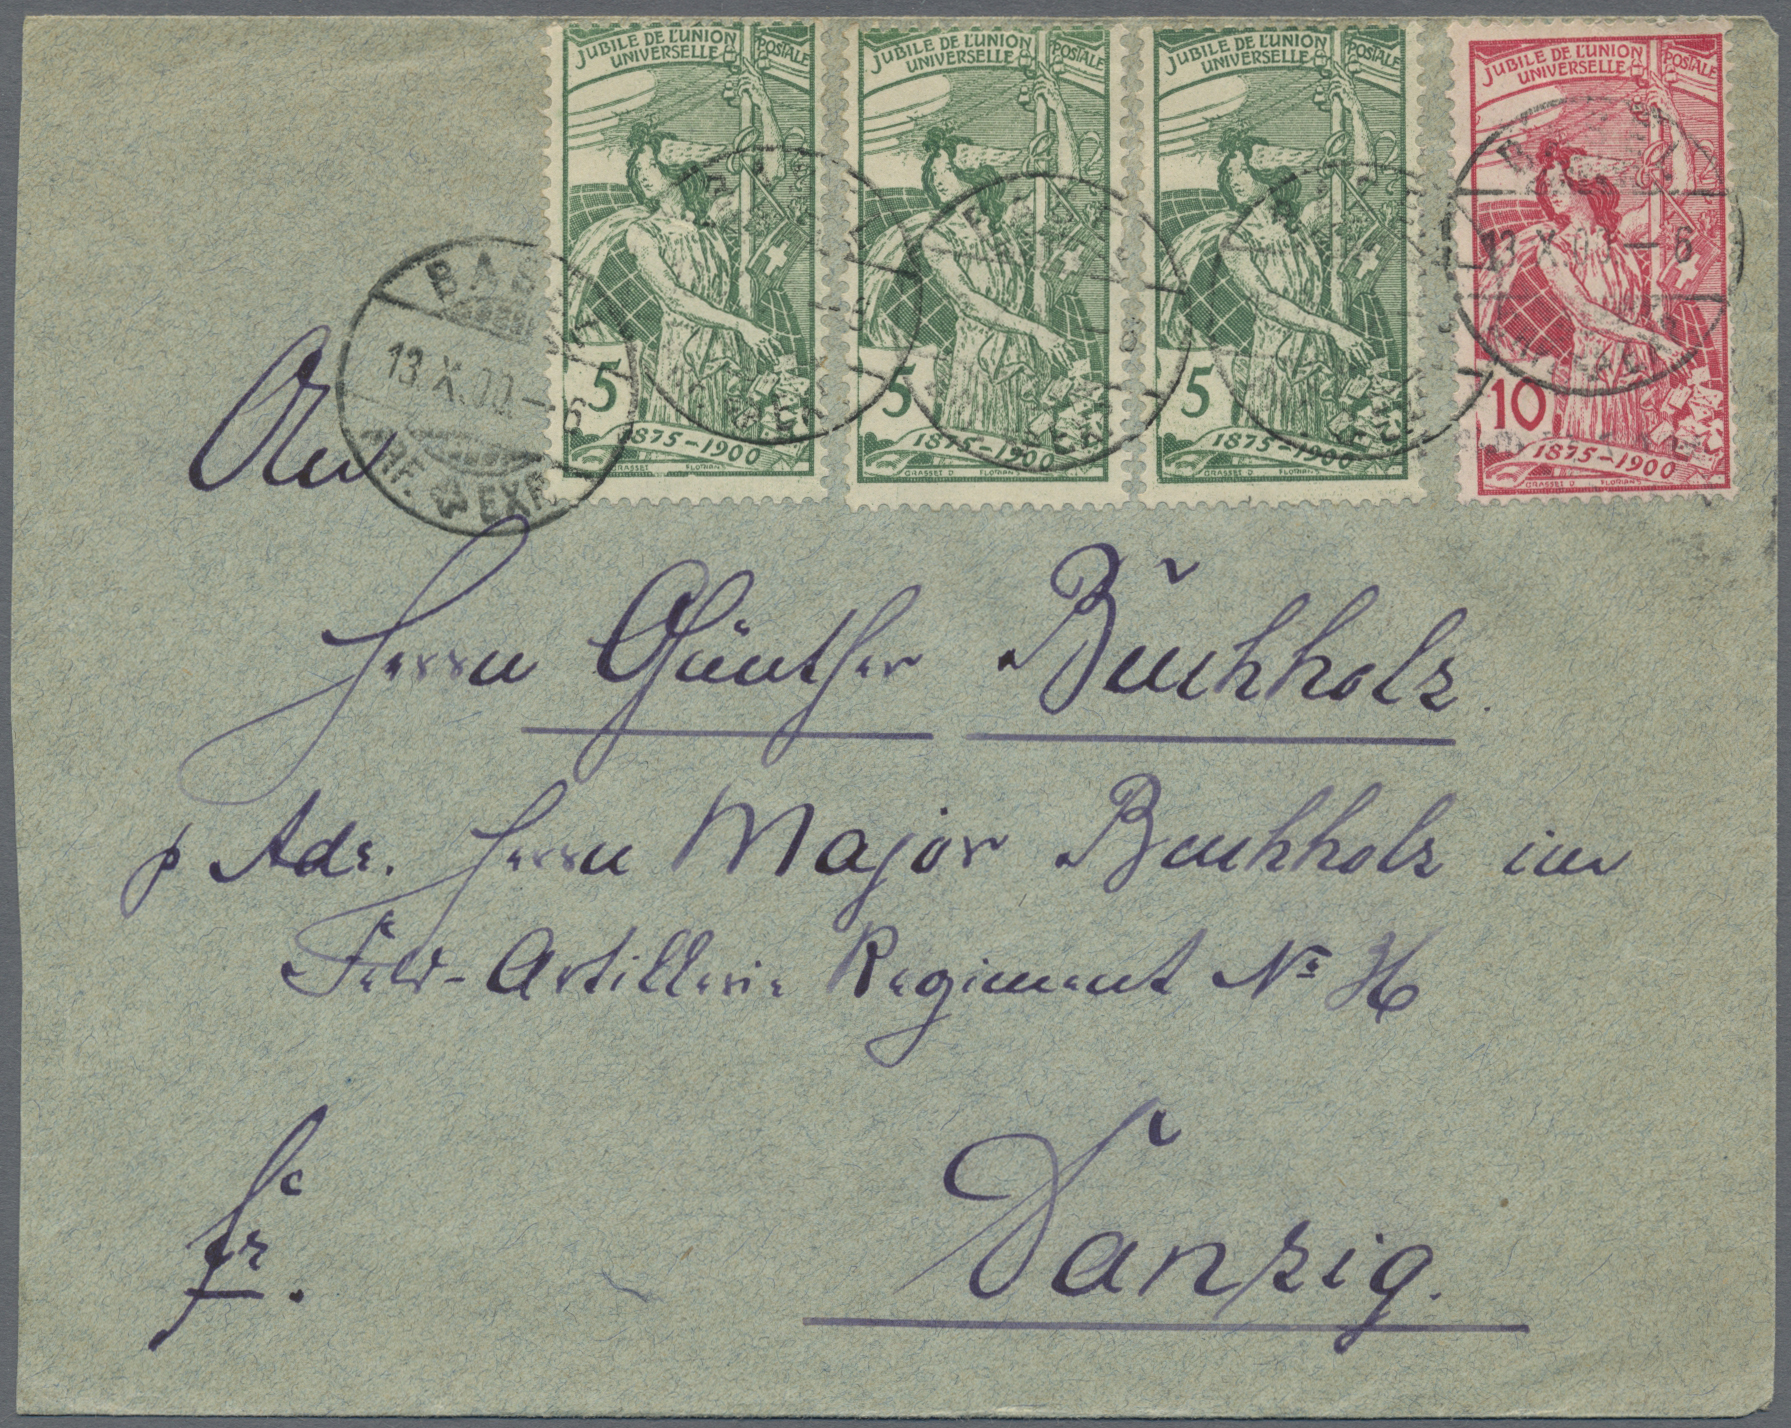 JUBILE DE L'UNION POSTALE
UNIVERSELLE
5
1875-1900
GRASSET D. FLORIAN S.
JUBILE DE L'UNION POSTALE
UNIVERSELLE
5
1875-1900
GRASSET D. FLORIAN S.
JUBILE DE L'UNION POSTALE
UNIVERSELLE
5
1875-1900
GRASSET D. FLORIAN S.
JUBILE DE L'UNION POSTALE
UNIVERSELLE
10
1875-1900
GRASSET D. FLORIAN S.
BAS
13.X.00.-6
BRF. EXP.
13.X.00-6
An
Herrn Günther Buchholz.
p Adr. Herrn Major Buchholz im
Feld-Artillerie Regiment No 36
fr.
Danzig.